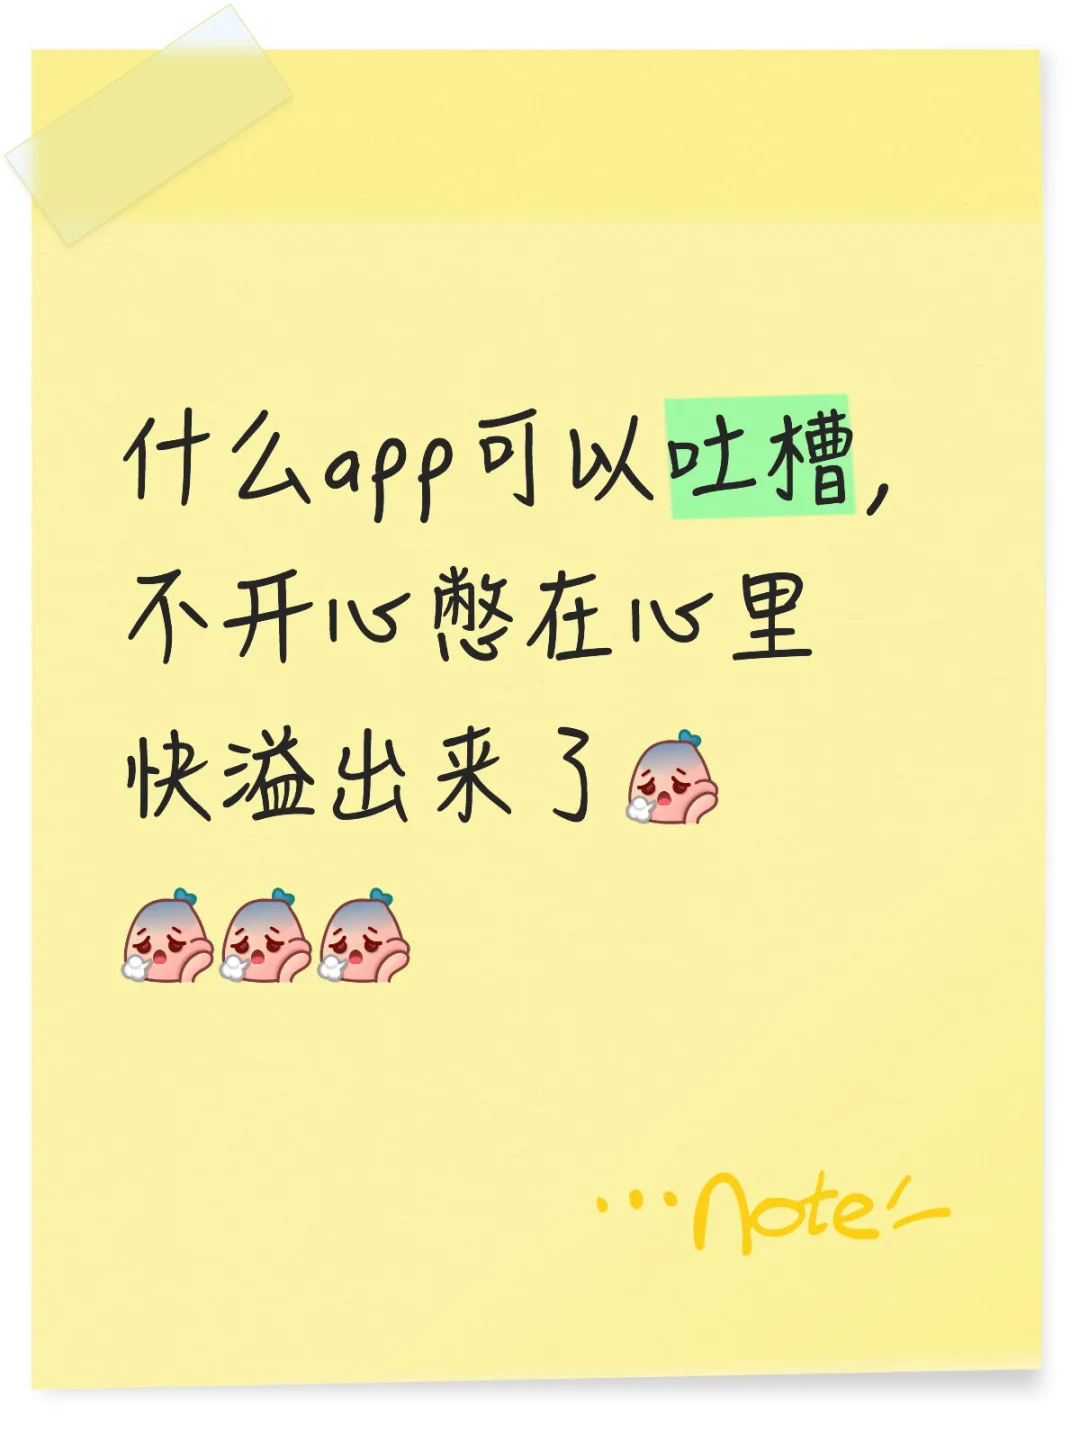 什么app可以吐槽，
不开心憋在心里
快溢出来了
...note